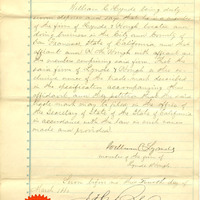 William C. Hynds being duly
sworn deposes and says that he is a member
of the firm of Hynds & Hough located and
doing business in the City and County of
San Francisco State of California that
affiant and R. H. Hough with affiant are
the members composing said firm, that
the said firm of Hynds & Hough is the
owner of the trade mark described
in the specification accompanying this
affidavit and the petition that said
trade mark may be filed in the Office of
the Secretary of State of the State of California
in accordance with the law in such cases
made and provided.
William C. Hynds
member of the firm of
Hynds & Hough
Sworn before me this fourth day of
March 188